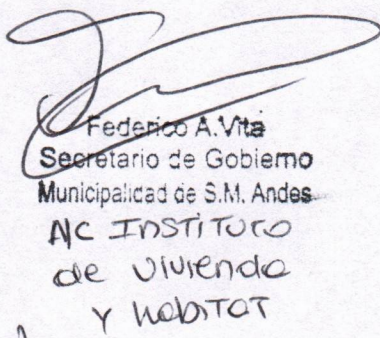 Federico A. Vita
Secretario de Gobierno
Municipalidad de S.M. Andes
A/C INSTITUTO
de vivienda
y habitat